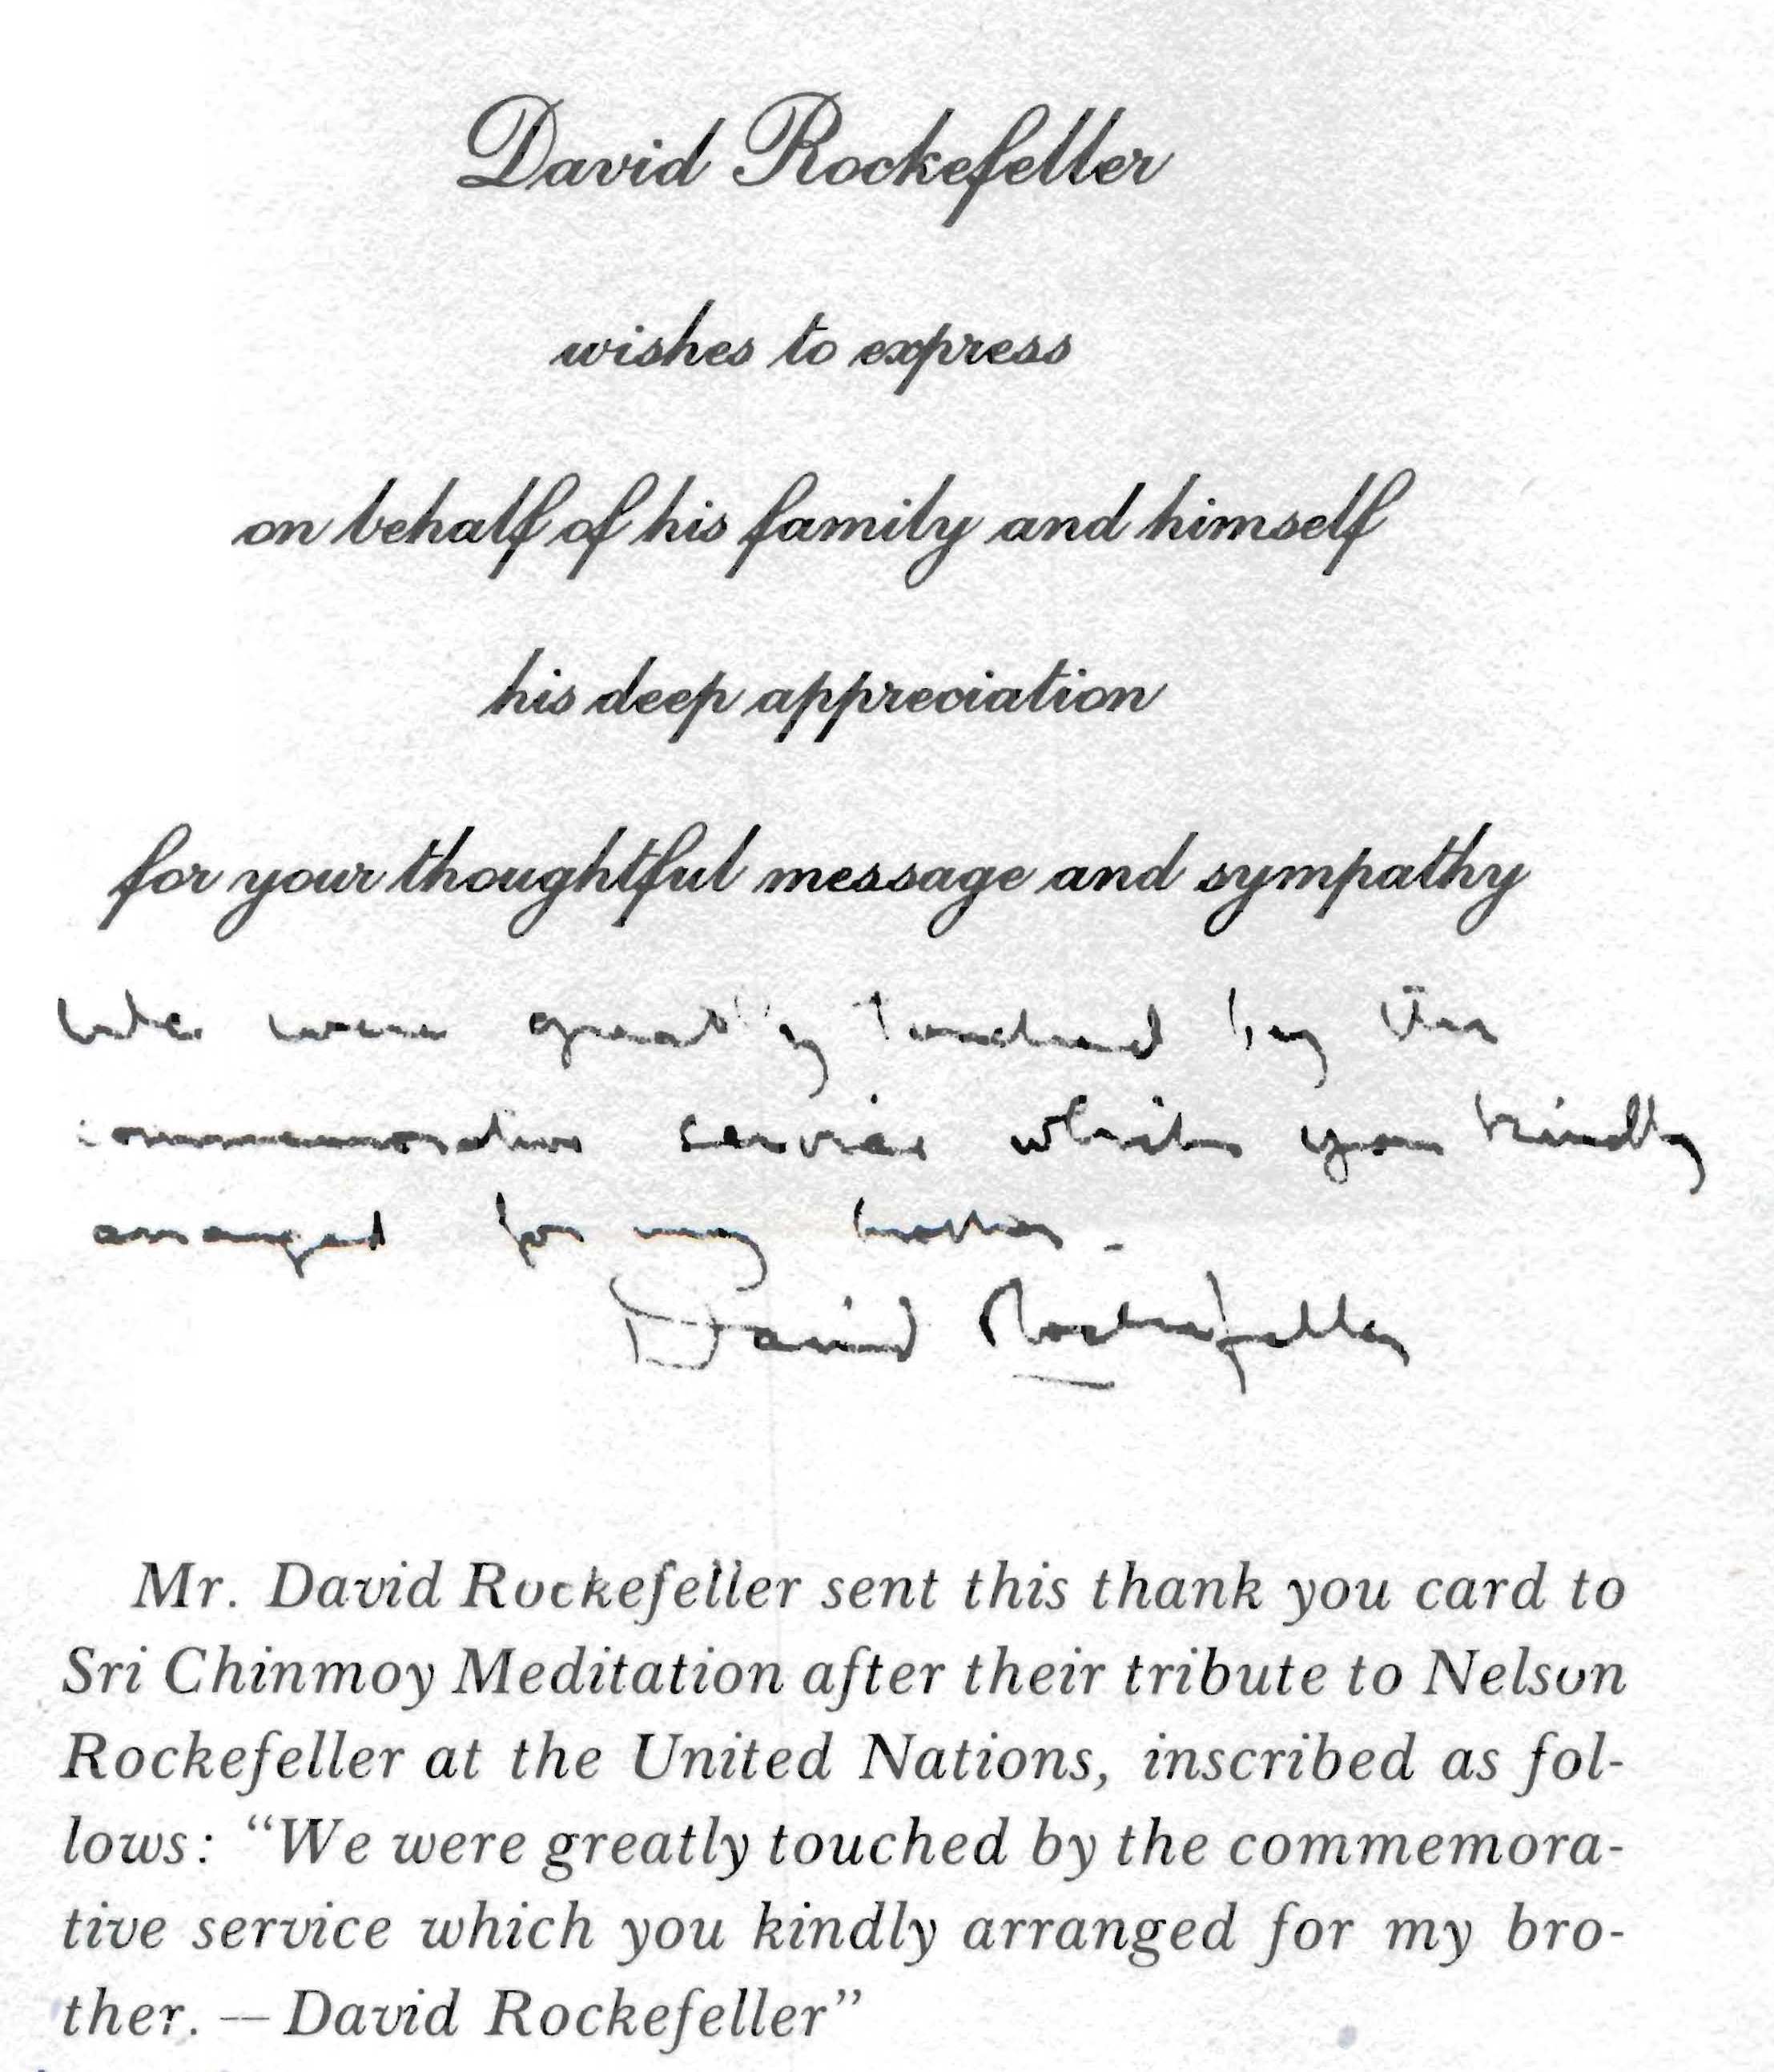 David Rockefeller
wishes to express
on behalf of his family and himself
his deep appreciation
for your thoughtful message and sympathy
We were greatly touched by the
commemorative service which you kindly
arranged for my brother.
David Rockefeller
Mr. David Rockefeller sent this thank you card to
Sri Chinmoy Meditation after their tribute to Nelson
Rockefeller at the United Nations, inscribed as fol-
lows: “We were greatly touched by the commemora-
tive service which you kindly arranged for my bro-
ther. — David Rockefeller”